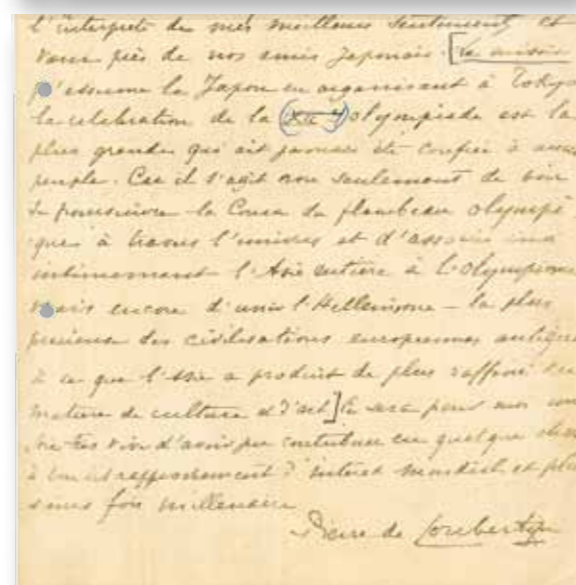 l'interprète de mes meilleurs sentiments et
près de nos amis Japonais. [La mission
qu'assume le Japon en organisant à Tokyo
la celebration de la (XIIe) olympiade est la
plus grande qui ait jamais été confiée à aucun
peuple. Car il s'agit non seulement de
de poursuivre la Course du flambeau olympi
que à travers l'univers et d'associer
intimement l'Asie entière à l'olympisme
mais encore d'unir l'Hellenisme - la plus
precieuse des civilisations europeennes antiques
à ce que l'Asie a produit de plus raffiné en
matiere de culture et d'art] Ce sera pour moi une
très vive d'avoir pu contribuer en quelque chose
à un rapprochement d'interet mondial et plu
sieurs fois millenaire
Pierre de Coubertin